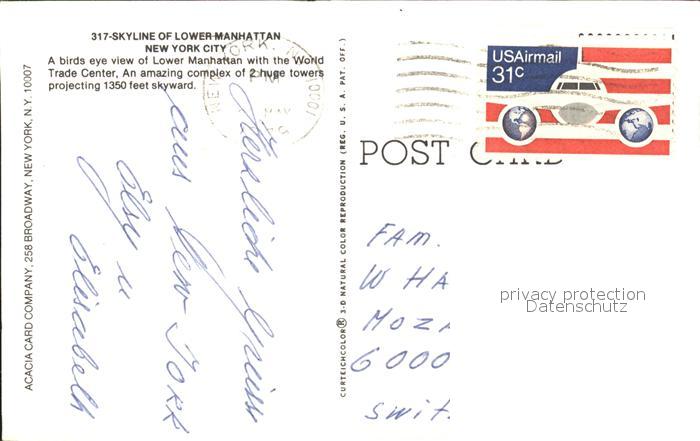 317-SKYLINE OF LOWER MANHATTAN
NEW YORK CITY
A birds eye view of Lower Manhattan with the World
Trade Center, An amazing complex of 2 huge towers
projecting 1350 feet skyward.
ACACIA CARD COMPANY, 258 BROADWAY, NEW YORK, N.Y. 10007
Herzliche Grüsse
aus New York
Elsy u
Elisabeth
CURTEICHCOLOR® 3-D NATURAL COLOR REPRODUCTION (REG. U. S. A. PAT. OFF.)
NEW YORK, N.Y.
PM
10001
USAirmail
31c
POST CARD
FAM.
W HA
MOZ
6000
Swit.
privacy protection
Datenschutz